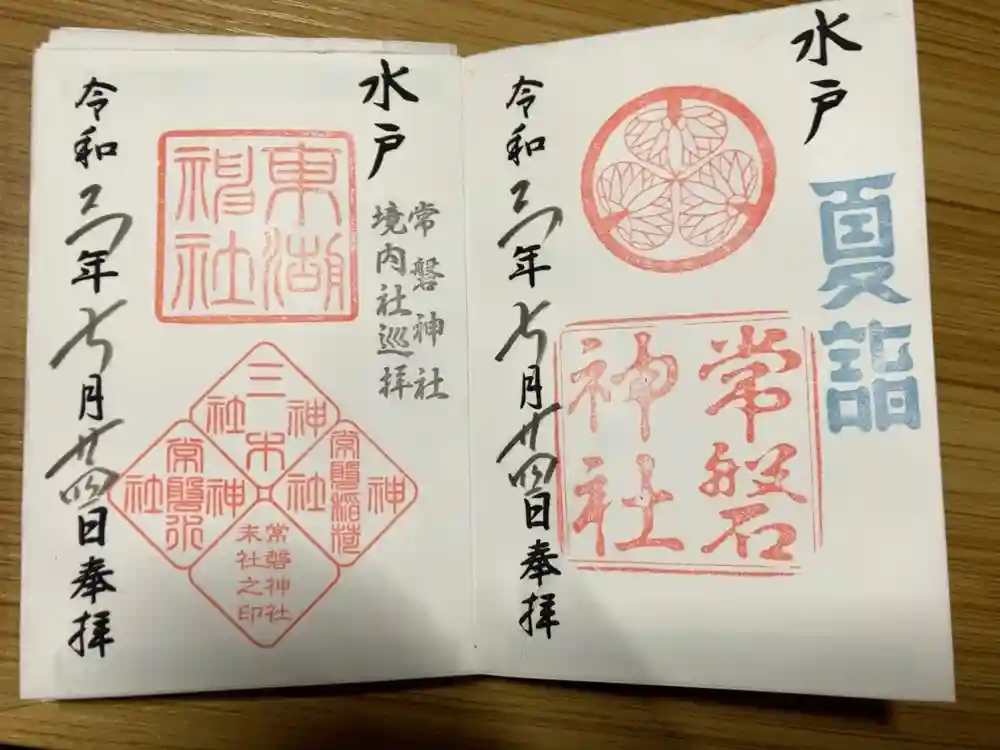 水戸
夏詣
常磐
神社
令和三年七月廿四日奉拝
水戸
常磐神社
境内社巡拝
東湖
神社
三木
神社
常磐稲荷
神社
常磐
神社
末社之印
令和三年七月廿四日奉拝